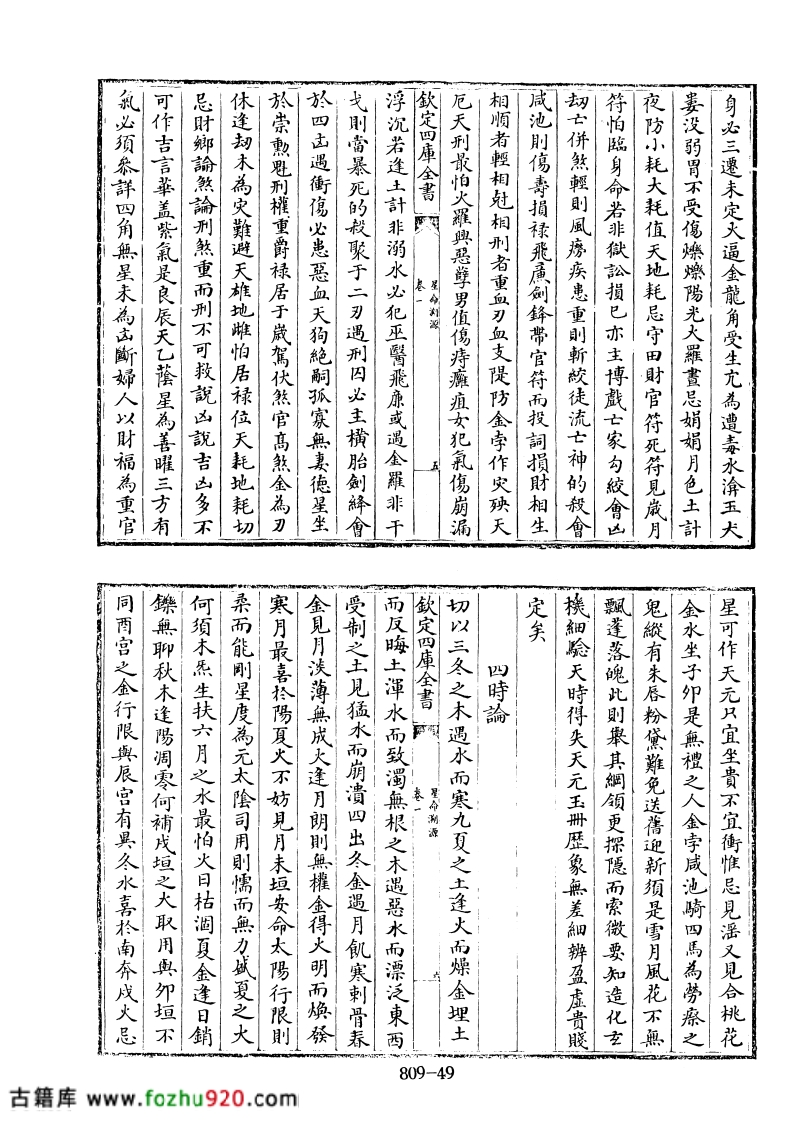 身必三遷未定火逼金龍角受生亢為遭毒水渰玉犬
婁没弱胃不受傷爍爍陽光火羅晝忌娟娟月色土計
夜防小耗大耗值天地耗忌守田財官符死符見歲月
符怕臨身命若非獄訟損已亦主博戲亡家勾絞會凶
刼亡併煞輕則風癆疾患重則斬絞徒流亡神的殺會
咸池則傷壽損禄飛㢘劍鋒帶官符而投詞損財相生
相順者輕相尅相刑者重血刃血支隄防金孛作灾殃天
厄天刑最怕火羅興惡孽男值傷痔癱疽女犯氣傷崩漏
欽定四庫全書
星命溯源
卷一
五
浮沉若逢土計非溺水必犯巫醫飛廉或遇金羅非干
戈則當暴死的殺聚于二刃遇刑囚必主橫胎劍絳會
於四凶遇衝傷必患惡血天狗絶嗣孤寡無妻德星坐
於崇勲魁刑權重爵禄居于歲駕伏煞官高煞金為刃
休逢刼木為灾難避天雄地雌怕居禄位天耗地耗切
忌財鄉論煞論刑煞重而刑不可救說凶說吉凶多不
可作吉言華盖紫氣是良辰天乙蔭星為善曜三方有
氣必須參詳四角無星未為凶斷婦人以財福為重官
星可作天元只宜坐貴不宜衝惟忌見滛又見合桃花
金水坐子卯是無禮之人金孛咸池騎四馬為勞瘵之
鬼縱有朱唇粉黛難免送舊迎新須是雪月風花不無
飄蓬落魄此則舉其綱領更探隱而索微要知造化𤣥
機細驗天時得失天元玉冊歷象無差細辨盈虛貴賤
定矣
四時論
切以三冬之木遇水而寒九夏之土逢火而燥金埋土
欽定四庫全書
星命溯源
卷一
六
而反晦土渾水而致濁無根之木遇惡水而漂泛東西
受制之土見猛水而崩潰四出冬金遇月飢寒刺骨春
金見月淡薄無成火逢月朗則無權金得火明而煥發
寒月最喜於陽夏火不妨見月未垣安命太陽行限則
柔而能剛星度為元太陰司用則懦而無力盛夏之火
何須木炁生扶六月之水最怕火日枯涸夏金逢日銷
鑠無聊秋木逢陽凋零何補戌垣之火取用與卯垣不
同酉宫之金行限與辰宫有異冬水喜於南奔戌火忌
809-49
古籍库 www.fozhu920.com